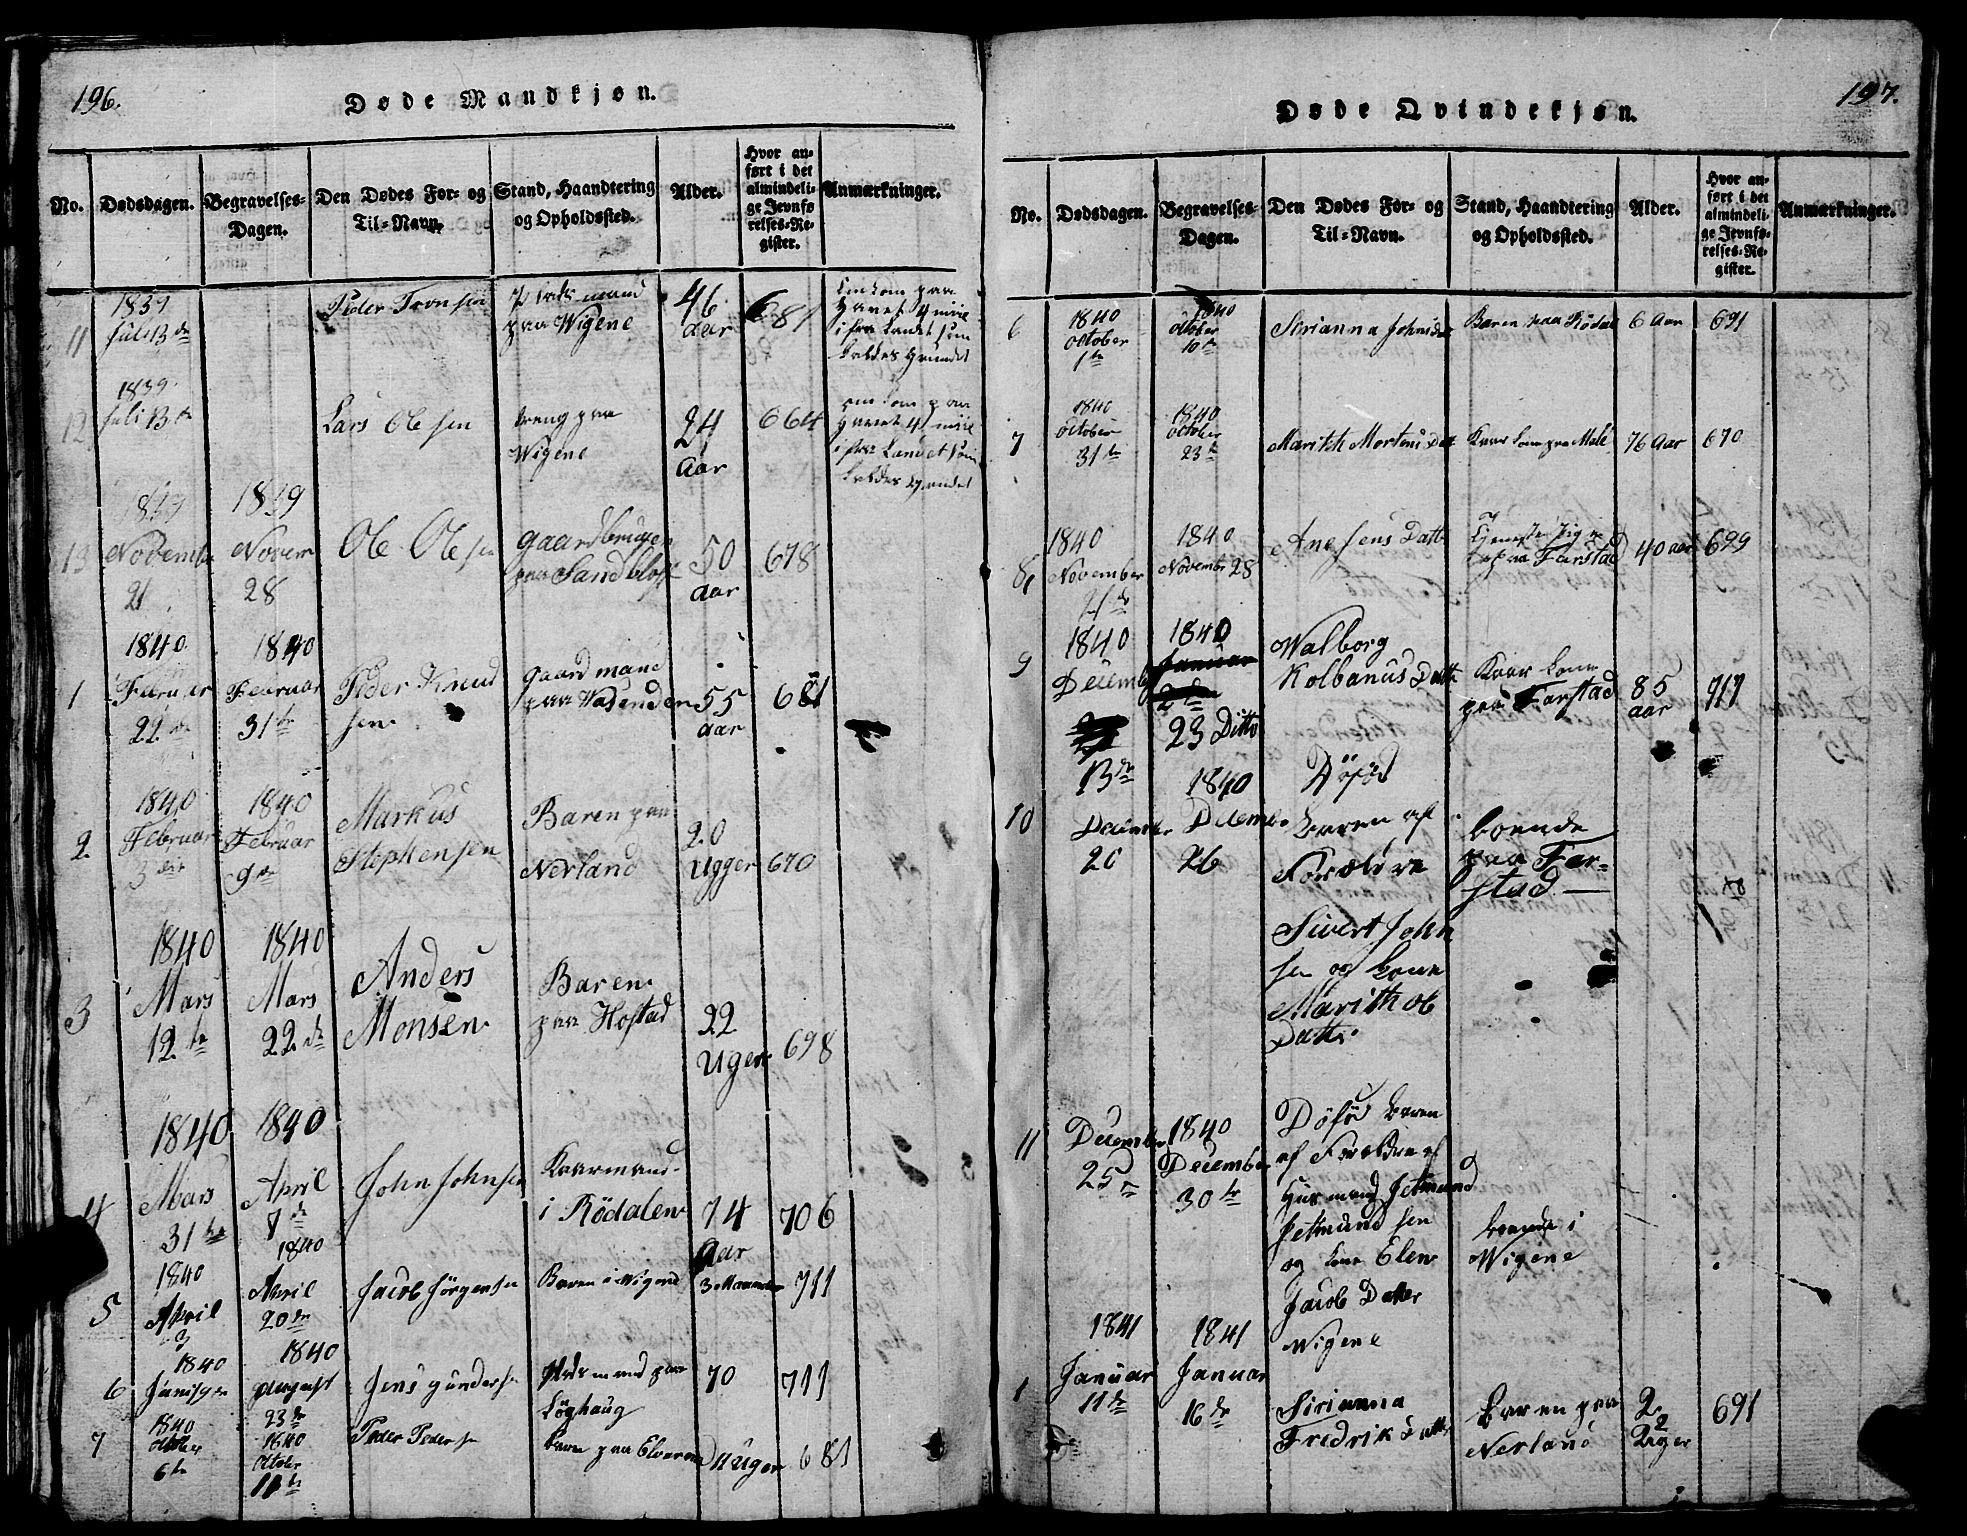 196.
Døde Mandkjøn.
No.
Dødsdagen.
Begravelses-
Dagen.
Den Dødes For- og
Til-Navn.
Stand, Haandtering
og Opholdssted.
Alder.
Hvor an-
ført i det
almindeli-
ge Jevnfø
relses-Re-
gister.
Anmærkninger.
11
1839
Juli 13 de
Peder Tronsen
paa Wigene
46
aar
681
12
1839
Juli 13 de
Lars Olesen
dreng paa
Wigene
24
Aar
664
13
1839
Novembr
21
1839
Novem
28
Ole Olesen
gaardbruger
paa Sandblost
50
aar
678
1
1840
22 de
1840
Februar
31 te
Peder Knud
sen
gaardmand
paa Wadenden
55
aar
681
2
1840
Februar
3 die
1840
Februar
9 de
Markus
Stephensen
Baren paa
Nerland
20
Ugger
670
3
1840
Mars
12 te
1840
Mars
22 de
Anders
Monsen
Baren
paa Hostad
22
Uger
698
4
1840
Mars
31 te
1840
April
7 de
John Johnsen
Kaarmand
i Rödalen
74
Aar
706
5
1840
April
3
1840
April
20 de
Jacob Jörgensen
Baren i Wigene
3 Maaneder
711
6
1840
1840
August
23 de
Jens Gundersen
Löghaug
70
711
7
1840
october
6 te
1840
October
11 te
Peder Pedersen
Baren paa Elveren
11 Uger
681
197.
Døde Qvindekjøn.
No.
Dødsdagen.
Begravelses-
Dagen.
Den Dødes For- og
Til-Navn.
Stand, Haandtering
og Opholdssted.
Alder.
Hvor an-
ført i det
almindeli-
ge Jevnfø-
relses-Re-
gister.
Anmærkninger.
6
1840
October
1 te
1840
october
10 de
Sirianna Johnsdat
Baren paa Rödal
6 Aar
691
7
1840
October
31 te
1840
October
23 de
Marith Mortens Dat
Kaarkone paa Male
76 Aar
670
8
1840
November
21 de
1840
Novembr 28
Ane Jens Datte
Tjeneste Pige
paa Farstad
40 aar
699
9
1840
Decembr
13 de
1840
Januar
23 Ditto
Walborg
Kolbanus Datte
Kaar kone
paa Farstad
85
aar
717
10
Decembr
20
1840
Decembr
26
Döfød
baren af
Forældre
Sivert John
sen og kone
Marith ols
Datte
boende
paa Far-
stad
11
December
25
1840
December
30 te
Döfød baren
af Forældre af
Huusmand Jetmund
Jetmundsen
og kone Elen
Jacob Datter
Wigene
boende i
Wigene
1
1841
Januar
11 te
1841
Januar
16 de
Sirianna
Fredrik Datter
Baren paa
Nerland
2
Uger
691